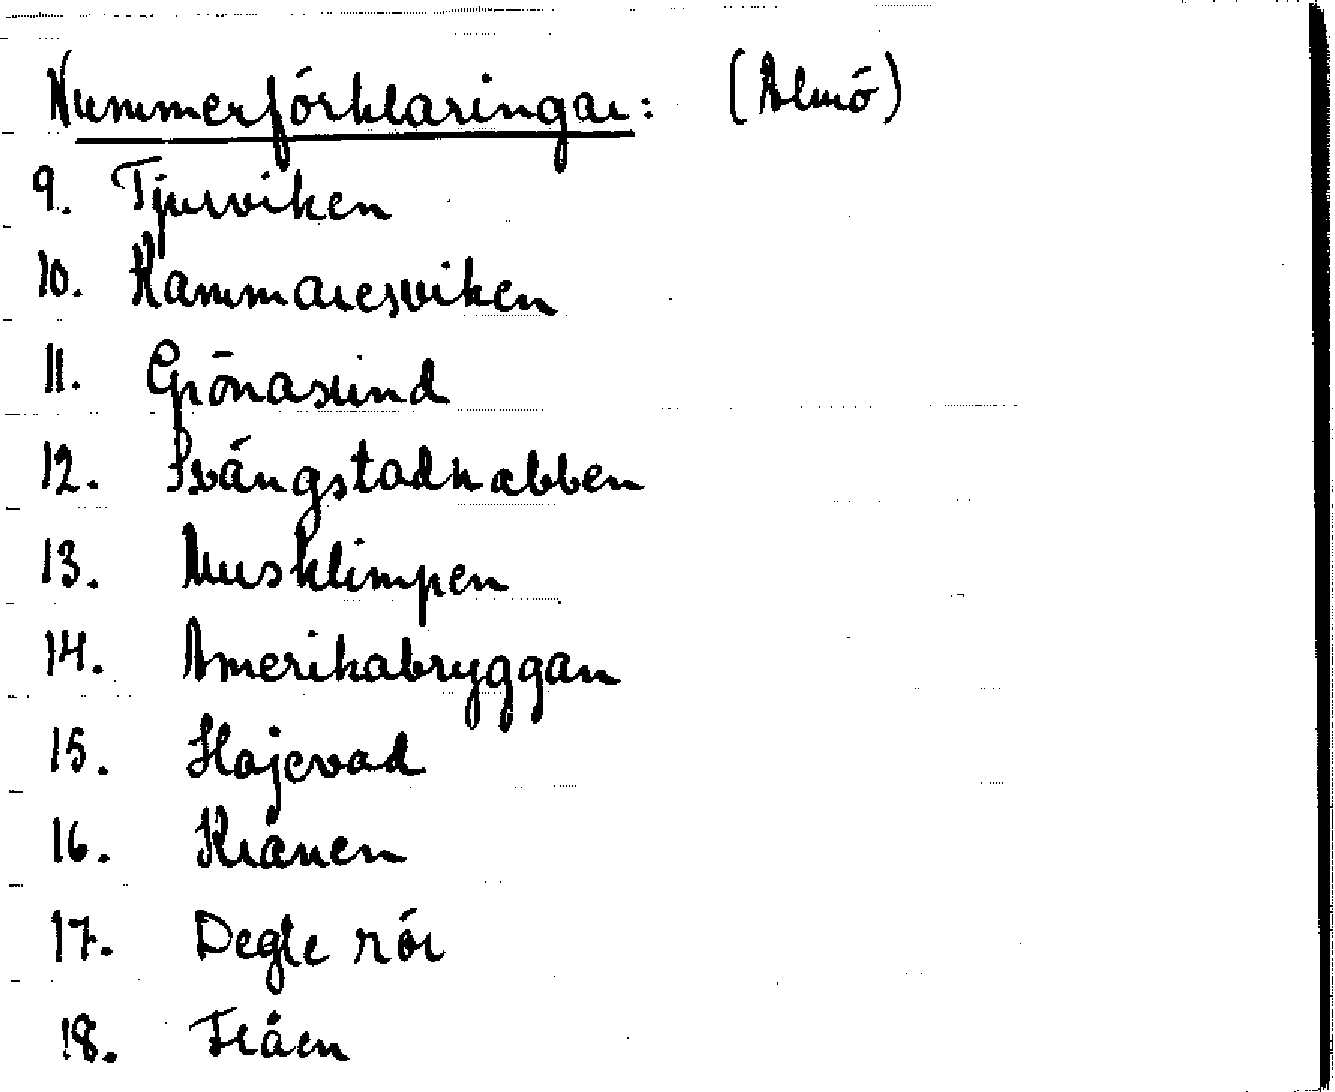 Nummerförklaringar: (Almö)
9. Tjurviken
10. Kammaresviken
11. Grönasund
12. Svängstadnabben
13. Musklimpen
14. Amerikabryggan
15. Hajevad
16. Kränen
17. Degle rör
18. Flåen